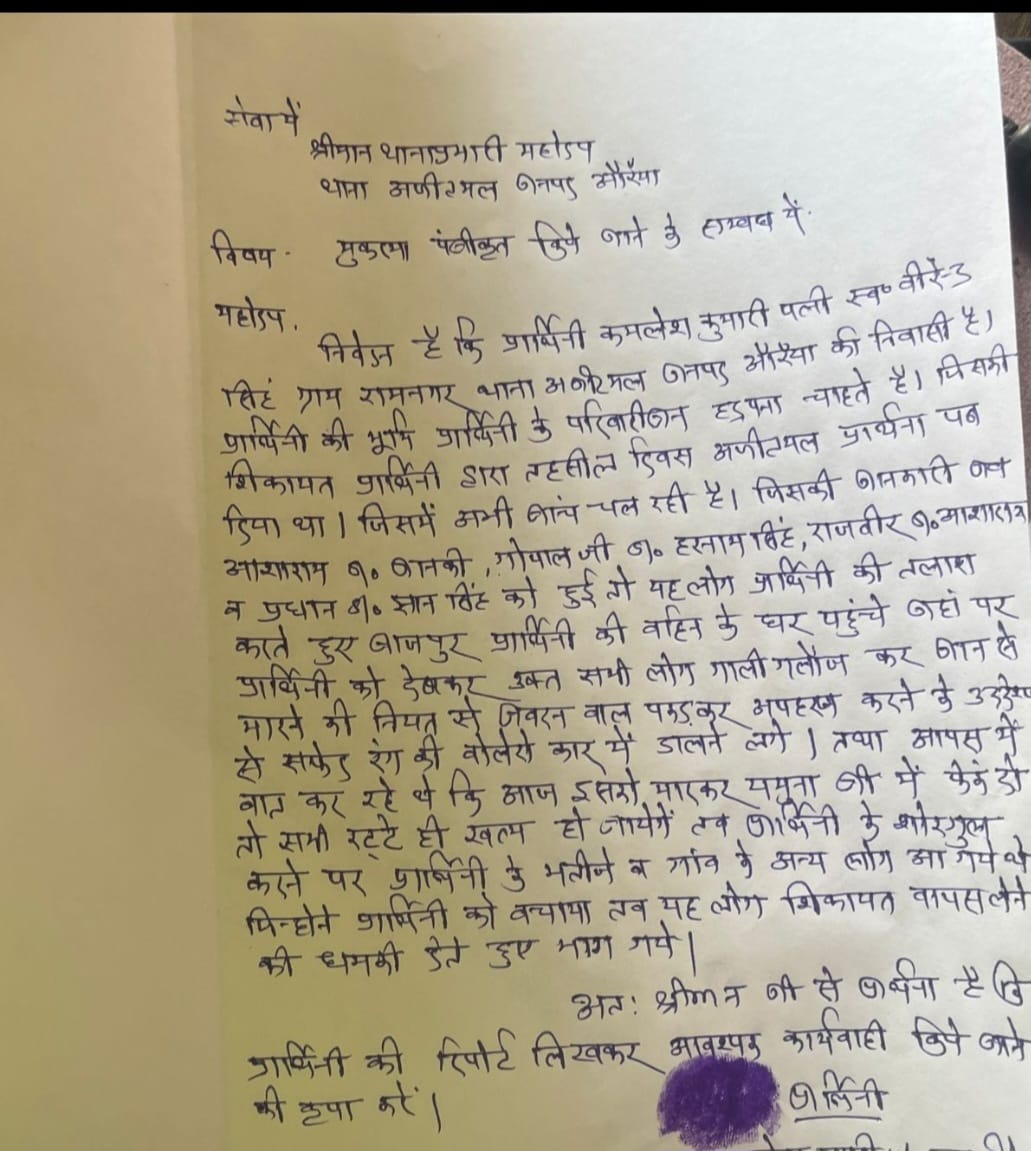 सेवा में
श्रीमान थानाप्रभारी महोदय
थाना अजीतमल जनपद औरैया
विषय - मुकदमा पंजीकृत किये जाने के सम्बंध में.
महोदय,
निवेदन है कि प्रार्थिनी कमलेश कुमारी पत्नी स्व० वीरेन्द्र
सिंह ग्राम रामनगर थाना अजीतमल जनपद औरैया की निवासी है।
प्रार्थिनी की भूमि प्रार्थिनी के परिवारीजन हड़पना चाहते है। जिसकी
शिकायत प्रार्थिनी द्वारा तहसील दिवस अजीतमल प्रार्थना पत्र
दिया था। जिसमें अभी जांच चल रही है। जिसकी जानकारी जब
आशाराम पु० जानकी, गोपाल जी पु० हरनाम सिंह, राजवीर पु० आशाराम
व प्रधान पु० ज्ञान सिंह को हुई तो यह लोग प्रार्थिनी की तलाश
करते हुए बाजपुर प्रार्थिनी की बहिन के घर पहुंचे जहां पर
प्रार्थिनी को देखकर उक्त सभी लोग गाली गलौज कर जान से
मारने की नियत से जबरन बाल पकड़कर अपहरण करने के उद्देश्य
से सफेद रंग की वोलेरो कार में डालने लगे। तथा आपस में
बात कर रहे थे कि आज इसको मारकर यमुना जी में फेकं दो
तो सभी रट्टे ही खत्म हो जायेगें तब प्रार्थिनी के शोरगुल
करने पर प्रार्थिनी के भतीजे व गांव के अन्य लोग आ गये थे
जिन्होने प्रार्थिनी को बचाया तब यह लोग शिकायत वापस लेने
की धमकी देते हुए भाग गये।
अतः श्रीमान जी से प्रार्थना है कि
प्रार्थिनी की रिपोर्ट लिखकर आवश्यक कार्यवाही किये जाने
की कृपा करें।
प्रार्थिनी